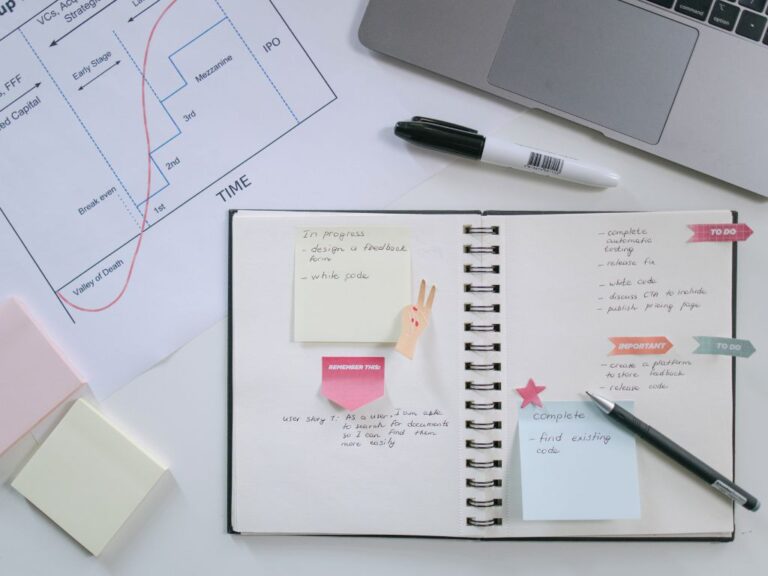 up
VCs, Acqu
Strategic
La
s, FFF
ed Capital
Early Stage
Mezzanine
IPO
3rd
2nd
1st
Break even
Valley of Death
TIME
In progress
- design a feedback
form
- white code
REMEMBER THIS:
user story 1: As a user, I am able
to search for documents
so I can find them
more easily
TO DO
- complete
automatic
testing
- release fix
- white code
- discuss CTA to include
- publish pricing page
IMPORTANT
TO DO
- create a platform
to store feedback
- release code
complete
- find existing
code
control
option
command